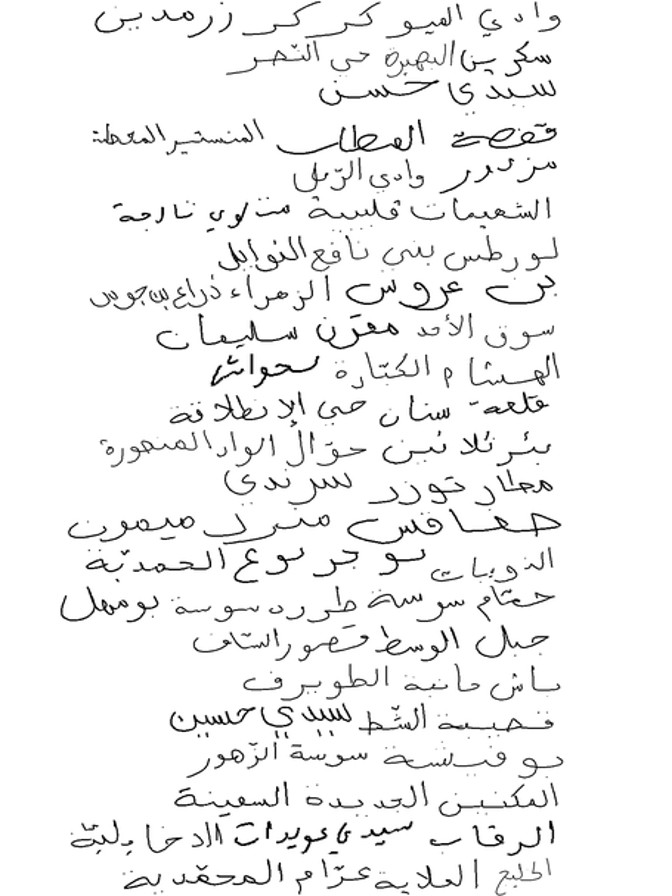 وادي الميو كركر زرمدين
سكرين البحيرة حي النصر
سيدي حسن
قفصة المطار المنستير المحطة
مزدور وادي الرّمل
الشعيمات قليبية منزلوي نارجة
لورطس بني نافع النوايل
بن عروس الزهراء ذراع بن جودر
سوق الأحد مقرن سليمان
الهشام الكتارة
قلعة سنان حي الإنطلاقة
بئر ثلاثين حوّال الواد المنصورة
مطار توزر سرندي
صفاقس منزل ميمون
الذويبات بوجربوع الحمديّة
حمّام سوسة طررده سوسة بومهل
جبل الوسط قصور الساف
باش حانبة الطويرف
قصيبة الشّط سيدي حسين
بوفيشة سوسة الزهور
المكنين الجديدة السفينة
الرقاب سيدي عويدات الدخايليّة
الخليج العلاية عزّام المحمّدية